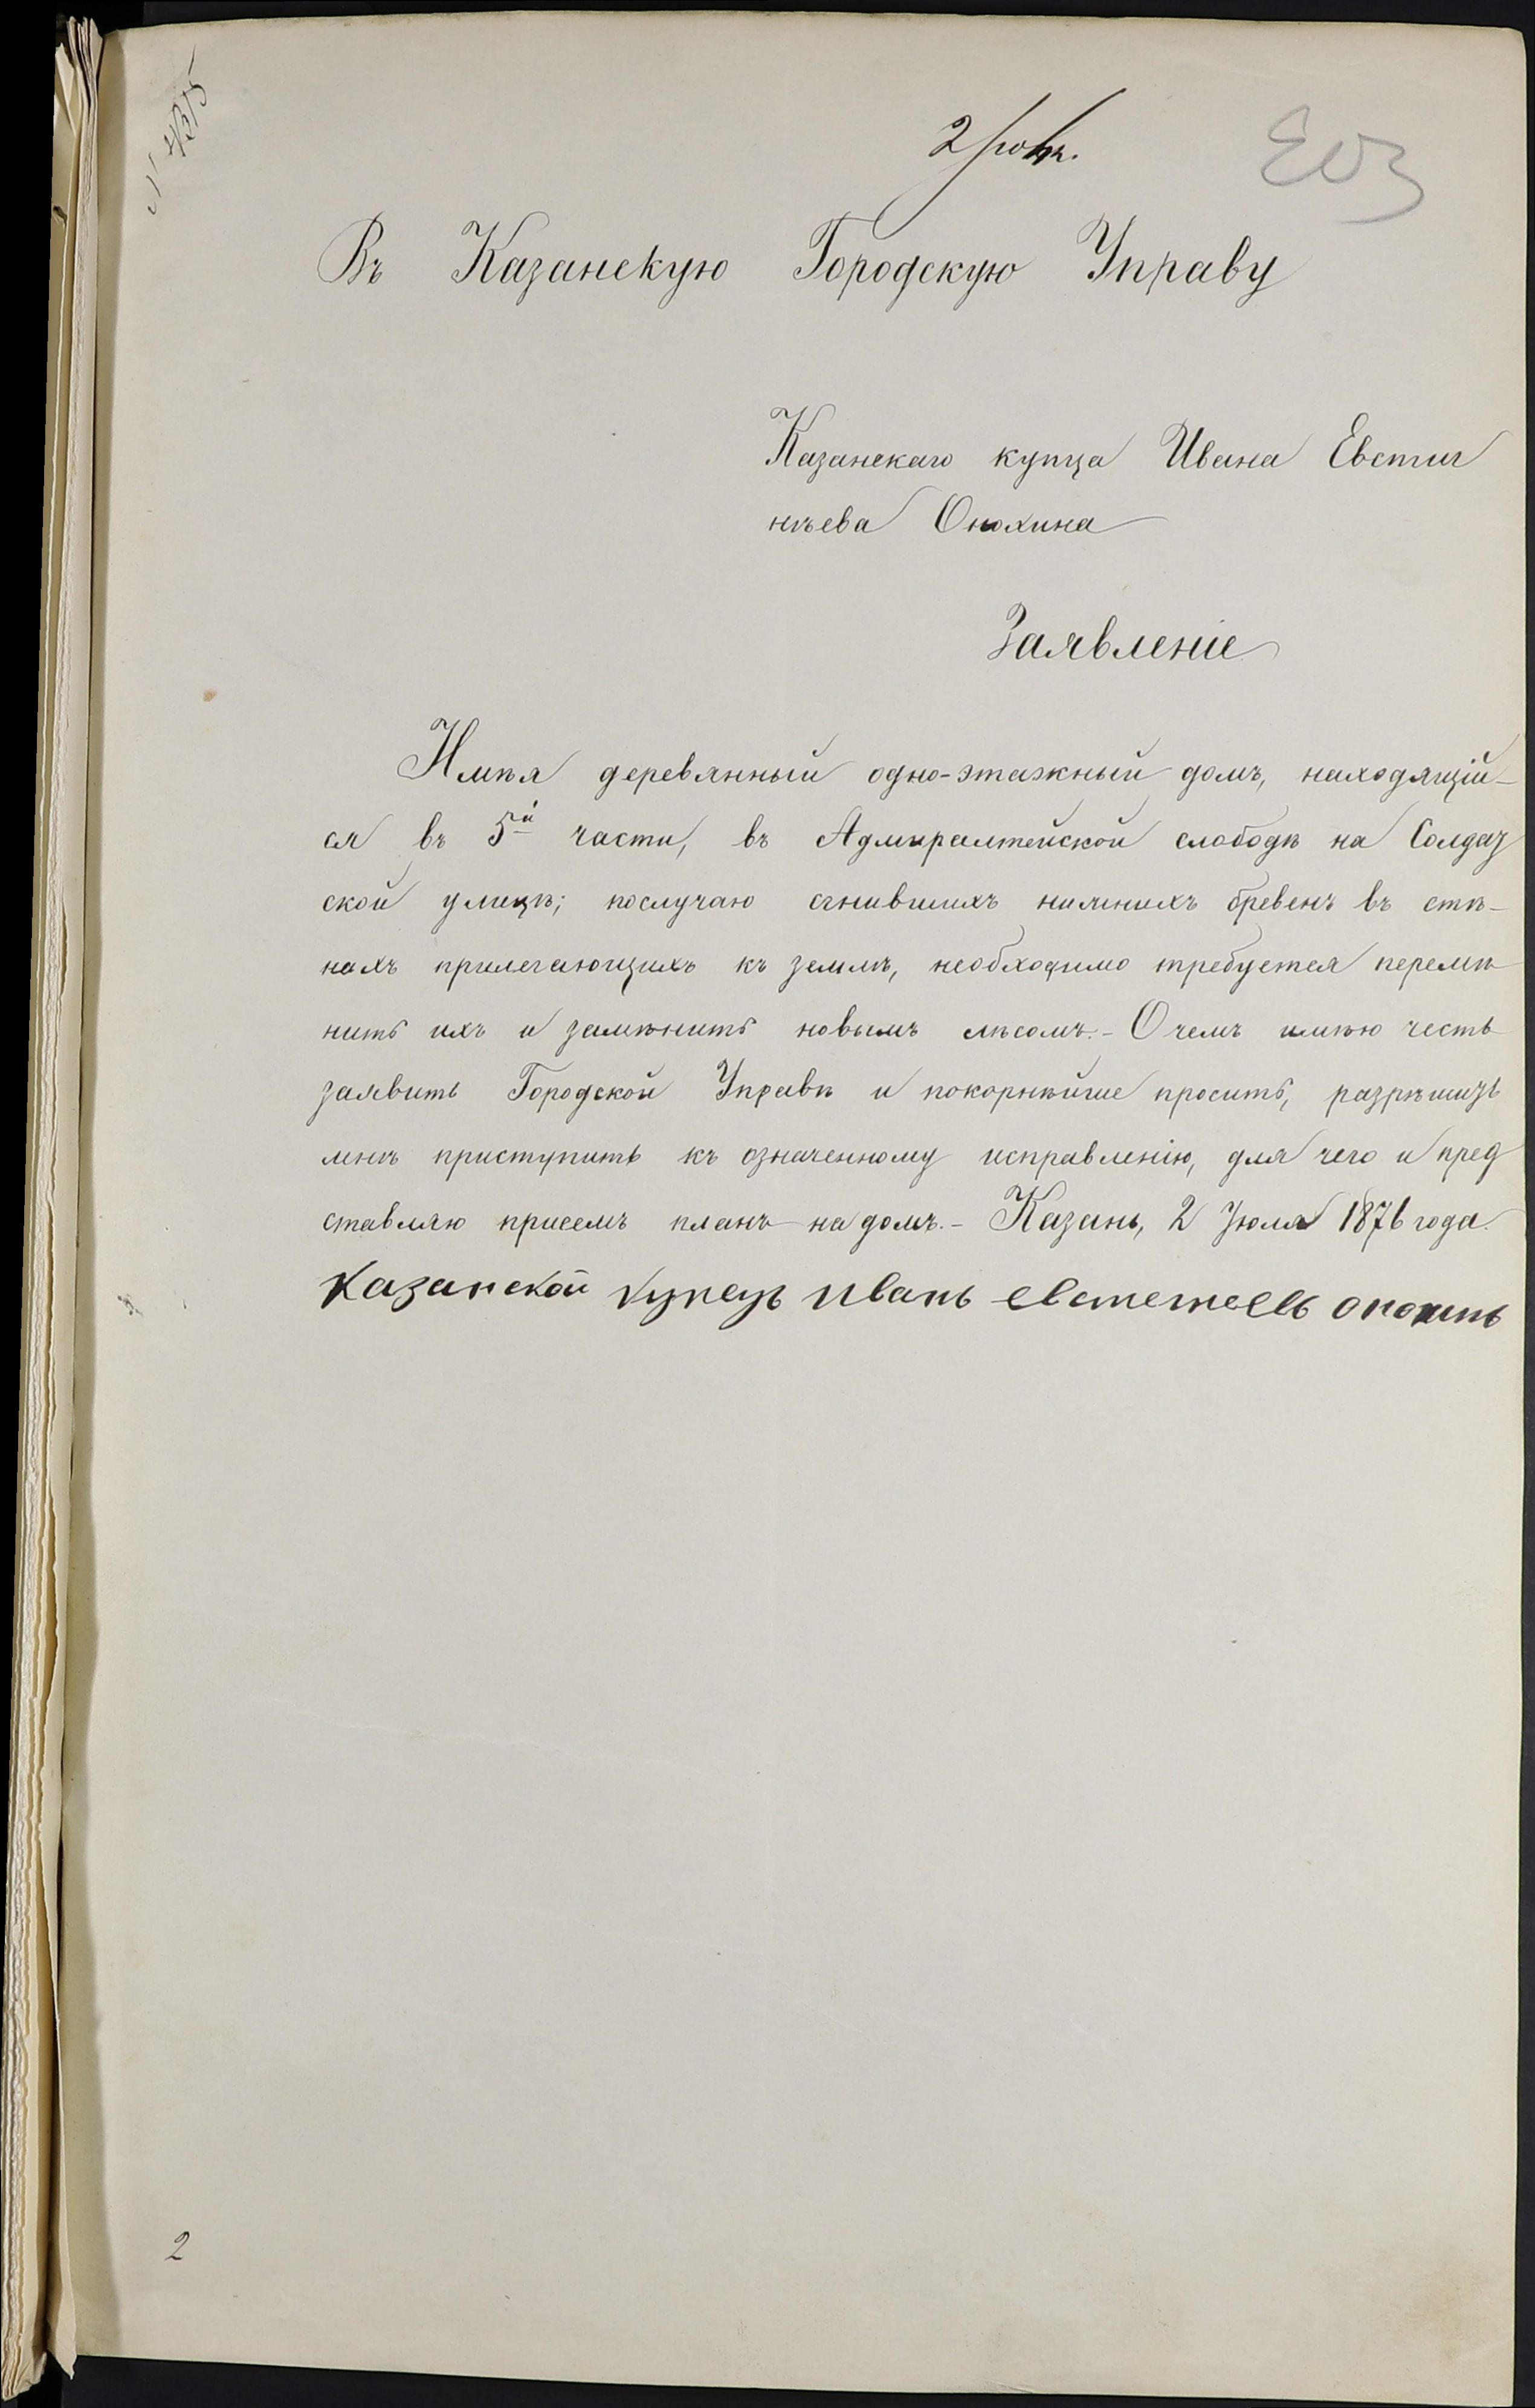 2 Іюля.
Въ Казанскую Городскую Управу
Казанскаго купца Ивана Евстиг
нѣева Онохина
Заявленіе
Имѣя деревянный одно-этажный домъ, находящій-
ся въ 5й части, въ Адмиралтейской слободѣ на Солдат
ской улицѣ; послучаю сгнившихъ нижнихъ бревенъ въ стѣ-
нахъ прилегающихъ къ землѣ, необходимо требуется перемѣ
нить ихъ и замѣнить новымъ лѣсомъ.- О чемъ имѣю честь
заявить Городской Управѣ и покорнѣйше просить, разрѣшить
мнѣ приступить къ означенному исправленію, для чего и пред
ставляю присемъ планъ на домъ.- Казань, 2 Іюля 1876 года.
Казанской купецъ иванъ
2